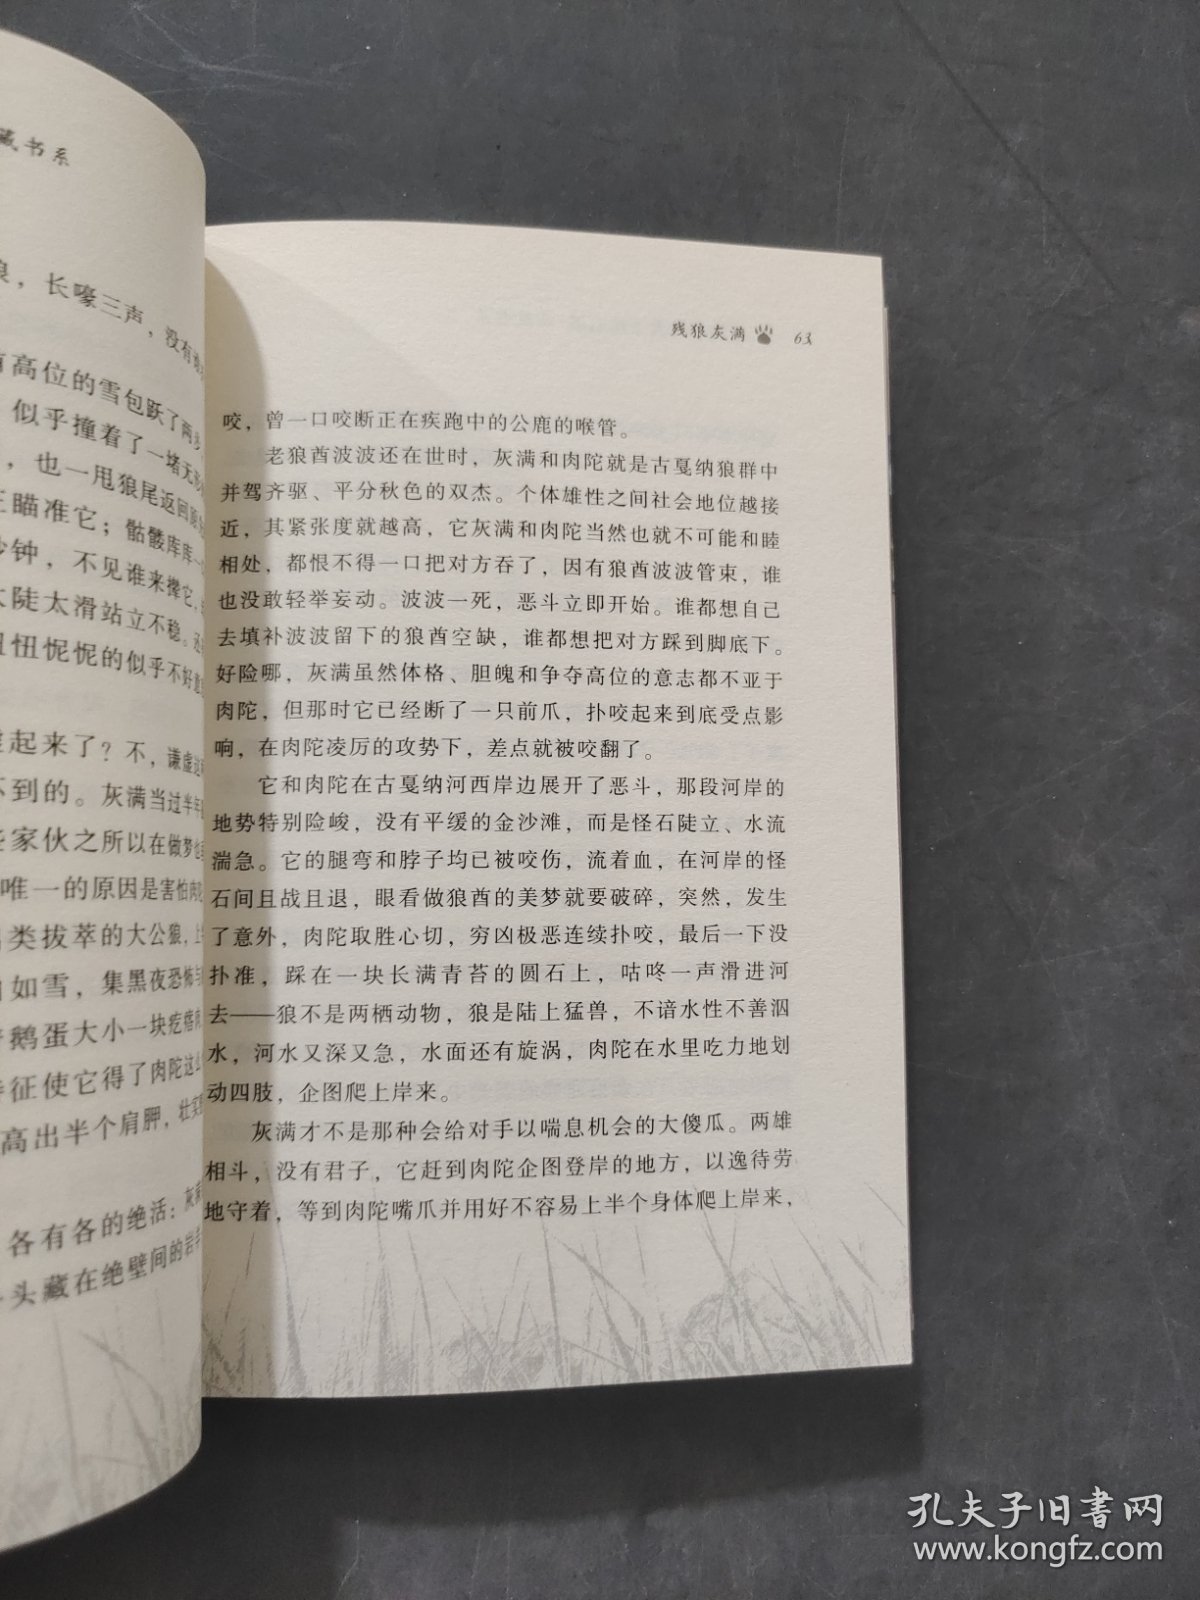 藏书系
狼，长嚎三声，没有
有高位的雪包跃了两
似乎撞着了一堵无
，也一甩狼尾返回
正瞄准它；骷髅库库一
秒钟，不见谁来撵它，
太陡太滑站立不稳。
扭扭怩怩的似乎不好
起来了？不，谦虚
不到的。灰满当过半年
些家伙之所以在做梦也
唯一的原因是害怕肉陀
类拔萃的大公狼，
如雪，集黑夜恐怖与
鹅蛋大小一块疙瘩肉
特征使它得了肉陀这
高出半个肩胛，壮实
各有各的绝活：灰
头藏在绝壁间的岩羊
残狼灰满 63
咬，曾一口咬断正在疾跑中的公鹿的喉管。
老狼酋波波还在世时，灰满和肉陀就是古戛纳狼群中
并驾齐驱、平分秋色的双杰。个体雄性之间社会地位越接
近，其紧张度就越高，它灰满和肉陀当然也就不可能和睦
相处，都恨不得一口把对方吞了，因有狼酋波波管束，谁
也没敢轻举妄动。波波一死，恶斗立即开始。谁都想自己
去填补波波留下的狼酋空缺，谁都想把对方踩到脚底下。
好险哪，灰满虽然体格、胆魄和争夺高位的意志都不亚于
肉陀，但那时它已经断了一只前爪，扑咬起来到底受点影
响，在肉陀凌厉的攻势下，差点就被咬翻了。
它和肉陀在古戛纳河西岸边展开了恶斗，那段河岸的
地势特别险峻，没有平缓的金沙滩，而是怪石陡立、水流
湍急。它的腿弯和脖子均已被咬伤，流着血，在河岸的怪
石间且战且退，眼看做狼酋的美梦就要破碎，突然，发生
了意外，肉陀取胜心切，穷凶极恶连续扑咬，最后一下没
扑准，踩在一块长满青苔的圆石上，咕咚一声滑进河
去——狼不是两栖动物，狼是陆上猛兽，不谙水性不善泅
水，河水又深又急，水面还有旋涡，肉陀在水里吃力地划
动四肢，企图爬上岸来。
灰满才不是那种会给对手以喘息机会的大傻瓜。两雄
相斗，没有君子，它赶到肉陀企图登岸的地方，以逸待劳
地守着，等到肉陀嘴爪并用好不容易上半个身体爬上岸来，
孔夫子旧书网
www.kongfz.com